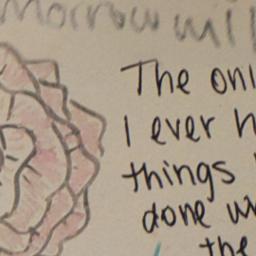 morrow will
The onl
I ever h
things
done w
the